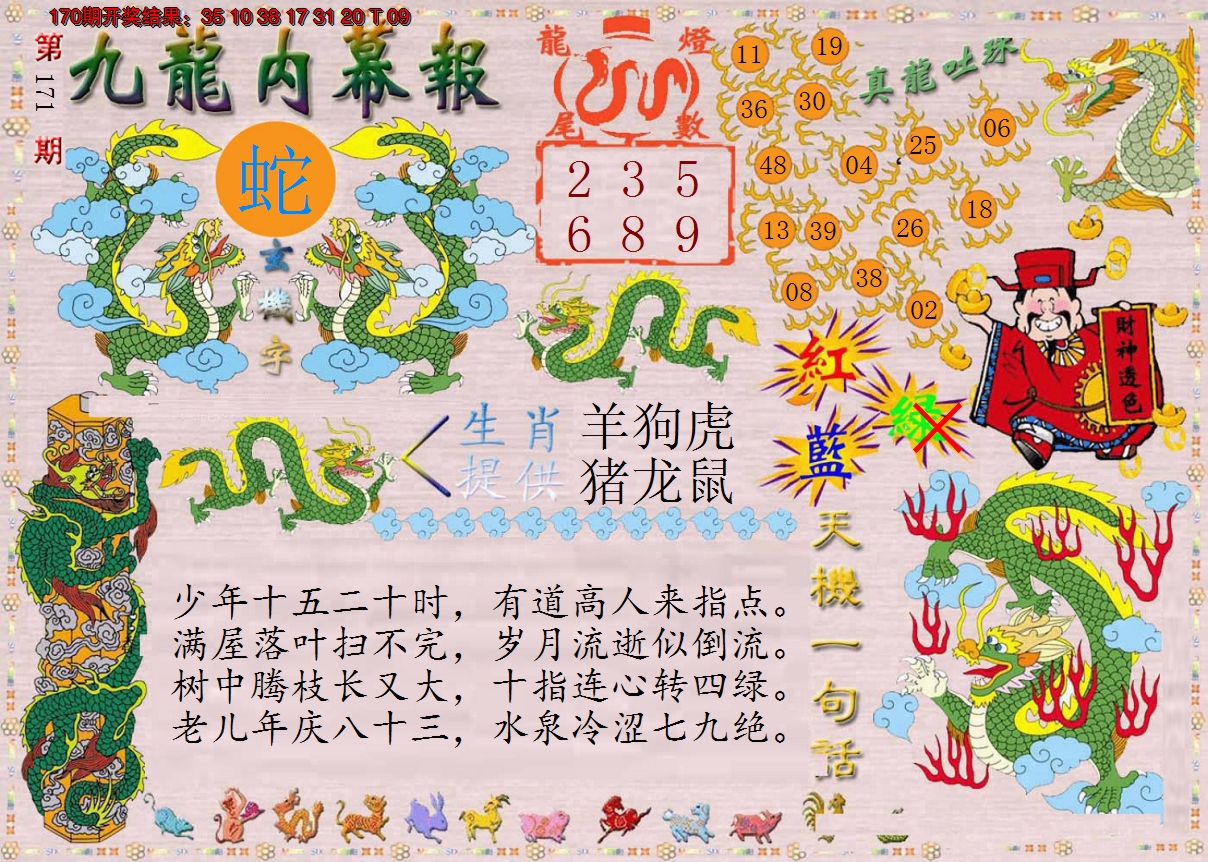 170期开奖结果：35 10 38 17 31 20 T 09
第171期
九龍内幕報
蛇
玄機字
龍燈
尾數
2 3 5
6 8 9
真龍吐珠
11
19
36
30
48
04
25
06
13
39
26
18
08
38
02
財神透色
紅
綠
藍
生肖
提供
羊狗虎
猪龙鼠
天機一句话
少年十五二十时，有道高人来指点。
满屋落叶扫不完，岁月流逝似倒流。
树中腾枝长又大，十指连心转四绿。
老儿年庆八十三，水泉冷涩七九绝。